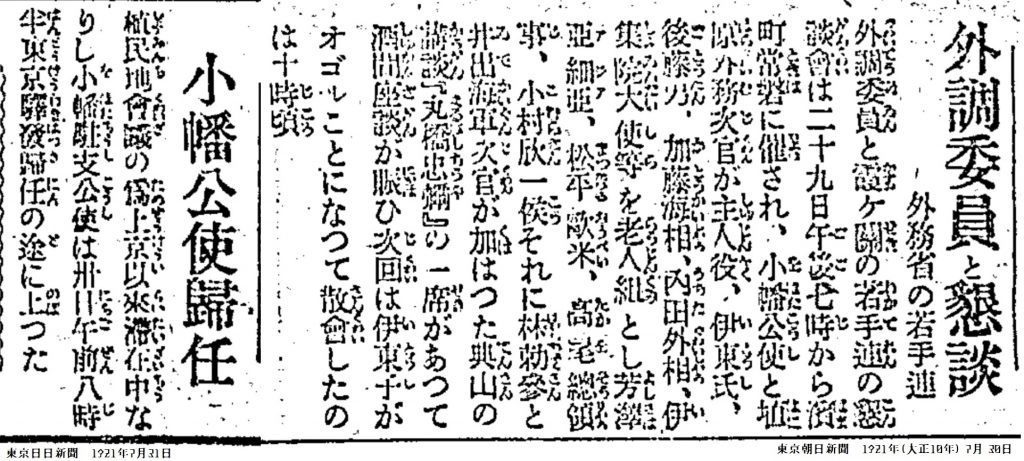 外調委員と懇談
外務省の若手連
外調委員と霞ケ關の若手連の懇
談會は二十九日午後七時から濱
町常磐に催され、小幡公使と埴
原外務次官が主人役、伊東氏、
後藤男、加藤海相、內田外相、伊
集院大使等を老人組とし芳澤
亞細亞、松平歐米、高尾總領
事、小村欣一侯それに林勅參と
井出海軍次官が加はつた典山の
講談『丸橋忠彌』の一席があつて
酒間座談が賑ひ次回は伊東子が
オゴルことになつて散會したの
は十時頃
小幡公使歸任
植民地會議の爲上京以來滯在中な
りし小幡駐支公使は卅日午前八時
半東京驛發歸任の途に上つた
東京朝日新聞 1921年(大正10年) 7月 30日
東京日日新聞 1921年7月31日